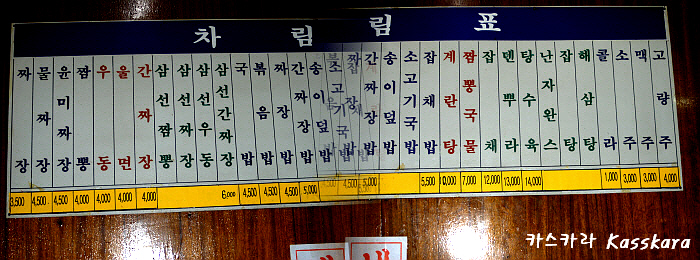 차 림 림 표
짜장
물짜장
윤미짜장
짬뽕
우동
울면
간짜장
삼선짬뽕
삼선짜장
삼선우동
삼선간짜장
국밥
볶음밥
짜장밥
간짜장밥
송이덮밥
소고기국밥
짜장밥
간짜장밥
송이덮밥
소고기국밥
잡채밥
계란탕
짬뽕국물
잡채
덴뿌라
탕수육
난자완스
잡탕
해삼탕
콜라
소주
맥주
고량주
3,500 4,500 4,500 4,000 4,000 4,000 4,000 6,000 4,500 4,500 4,500 5,000 4,500 5,000 5,500 10,000 7,000 12,000 13,000 14,000 1,000 3,000 3,000 4,000
카스카라 Kasskara